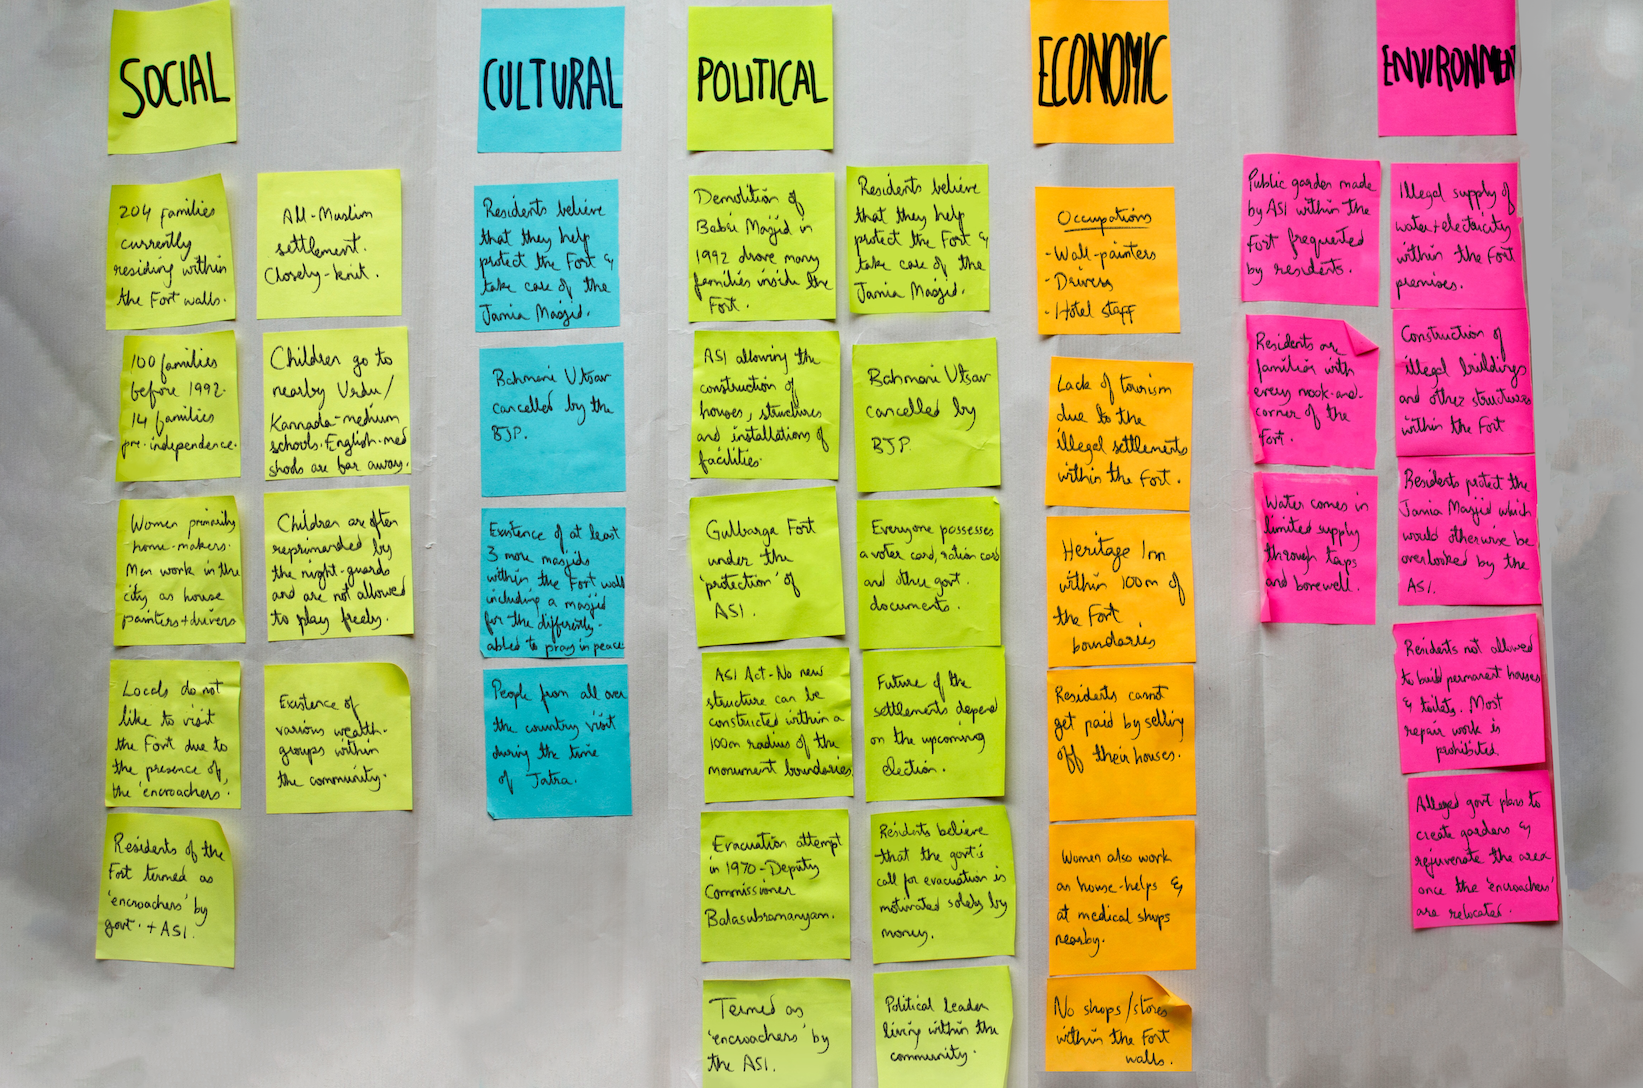 SOCIAL
204 families
currently
residing within
the Fort walls.
100 families
before 1992.
14 families
pre-independence.
Women primarily
home-makers.
Men work in the
city as house
painters + drivers
Locals do not
like to visit
the Fort due to
the presence of
the 'encroachers'.
Residents of the
Fort termed as
'encroachers' by
govt. + ASI.
All-Muslim
settlement.
Closely-knit.
Children go to
nearby Urdu/
Kannada-medium
schools. English-med
shools are far away.
Children are often
reprimanded by
the night-guards
and are not allowed
to play freely.
Existence of
various wealth-
groups within
the community.
CULTURAL
Residents believe
that they help
protect the Fort &
take care of the
Jamia Masjid.
Bahmani Utsav
cancelled by the
BJP.
Existence of at least
3 more masjids
within the Fort wall
including a masjid
for the differently-
abled to pray in peace
People from all over
the country visit
during the time
of Jatra.
POLITICAL
Demolition of
Babri Masjid in
1992 drove many
families inside the
Fort.
ASI allowing the
construction of
houses, structures
and installations of
facilities.
Gulbarga Fort
under the
'protection' of
ASI.
ASI Act-No new
structure can be
constructed within a
100m radius of the
monument boundaries.
Evacuation attempt
in 1970-Deputy
Commissioner
Balasubramanyam.
Termed as
'encroachers' by
the ASI.
Residents believe
that they help
protect the Fort &
take care of the
Jamia Masjid.
Bahmani Utsav
cancelled by
BJP.
Everyone possesses
a voter card, ration card
and other govt.
documents.
Future of the
settlements depend
on the upcoming
election.
Residents believe
that the govt's
call for evacuation is
motivated solely by
money.
Political leader
living within the
community.
ECONOMIC
Occupations
- Wall-painters
- Drivers
- Hotel staff
Lack of tourism
due to the
illegal settlements
within the Fort.
Heritage Inn
within 100m of
the Fort
boundaries
Residents cannot
get paid by selling
off their houses.
Women also work
as house-helps &
at medical shops
nearby.
No shops/stores
within the Fort
walls.
ENVIRONMEN
Public garden made
by ASI within the
Fort frequented
by residents.
Residents are
familiar with
every nook-and-
corner of the
Fort.
Water comes in
limited supply
through taps
and borewell.
Illegal supply of
water + electricity
within the Fort
premises.
Construction of
illegal buildings
and other structures
within the Fort
Residents protect the
Jamia Masjid which
would otherwise be
overlooked by the
ASI.
Residents not allowed
to build permanent houses
& toilets. Most
repair work is
prohibited.
Alleged govt plans to
create gardens &
rejuvenate the area
once the 'encroachers'
are relocated.